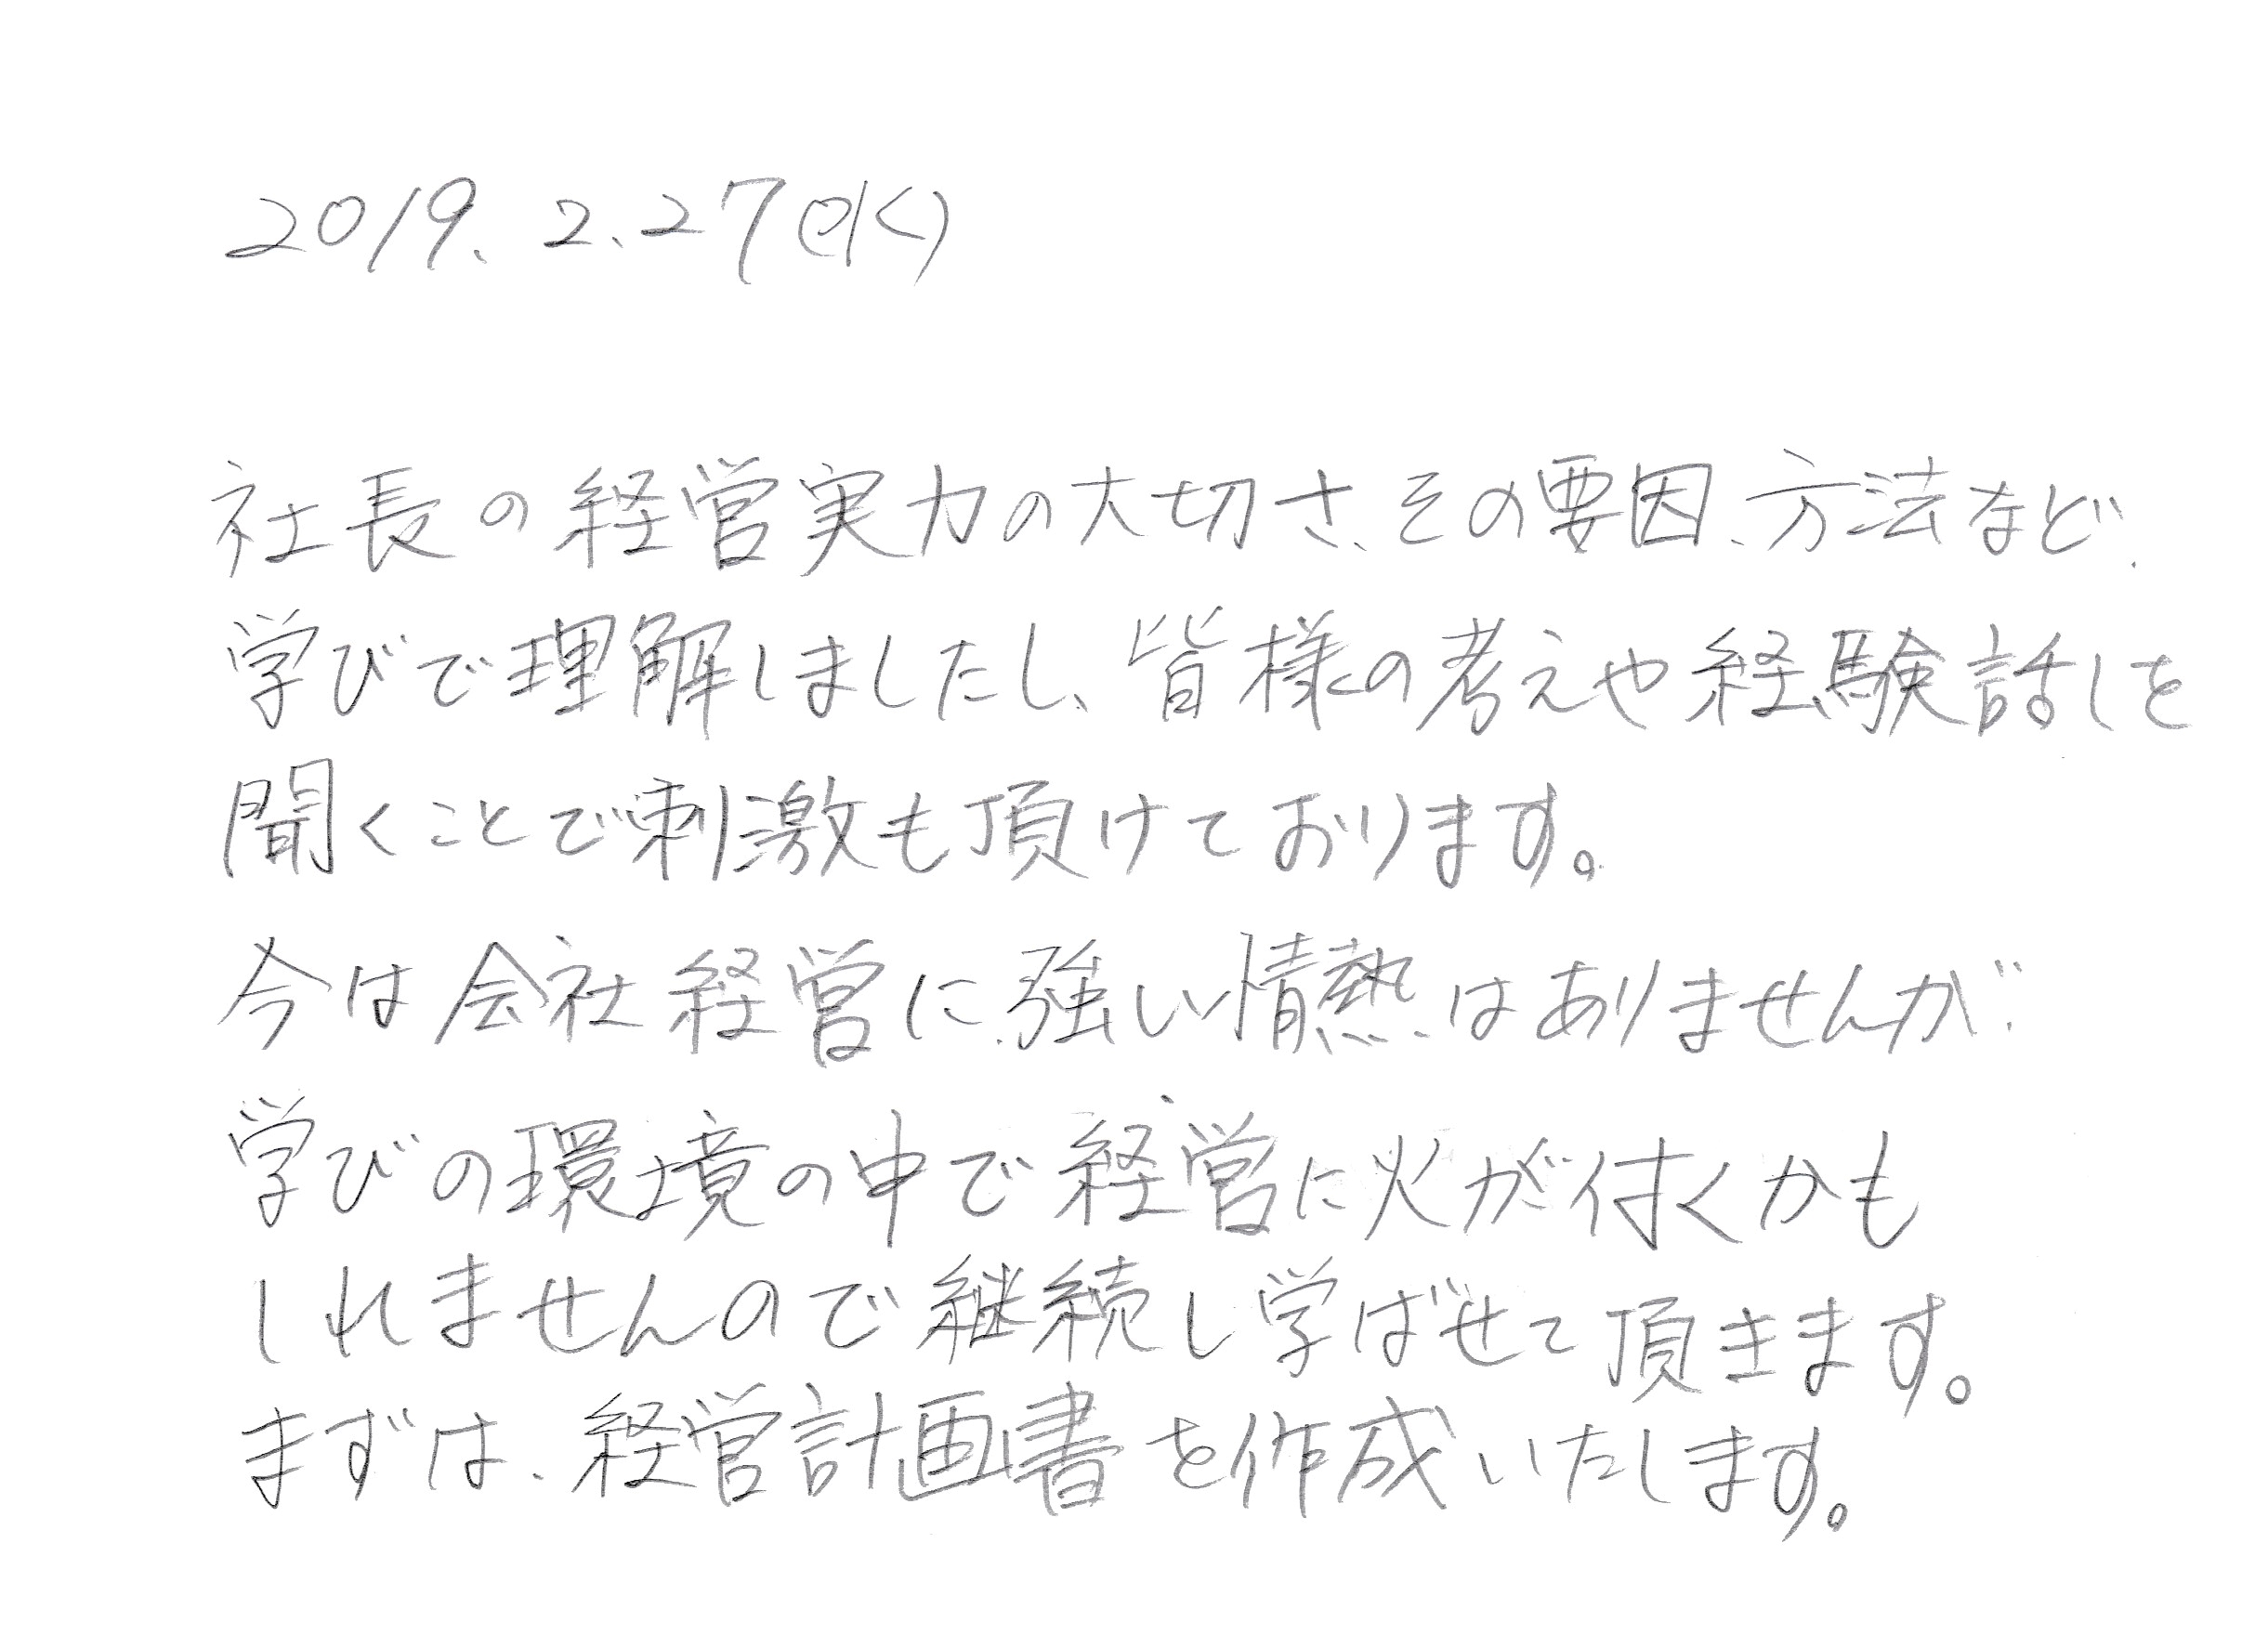 2019.2.27(水)
社長の経営実力の大切さ、その要因、方法など、
学びで理解しましたし、皆様の考えや経験話しを
聞くことで刺激も頂けております。
今は会社経営に強い情熱はありませんが、
学びの環境の中で経営に火が付くかも
しれませんので継続し学ばせて頂きます。
まずは、経営計画書を作成いたします。